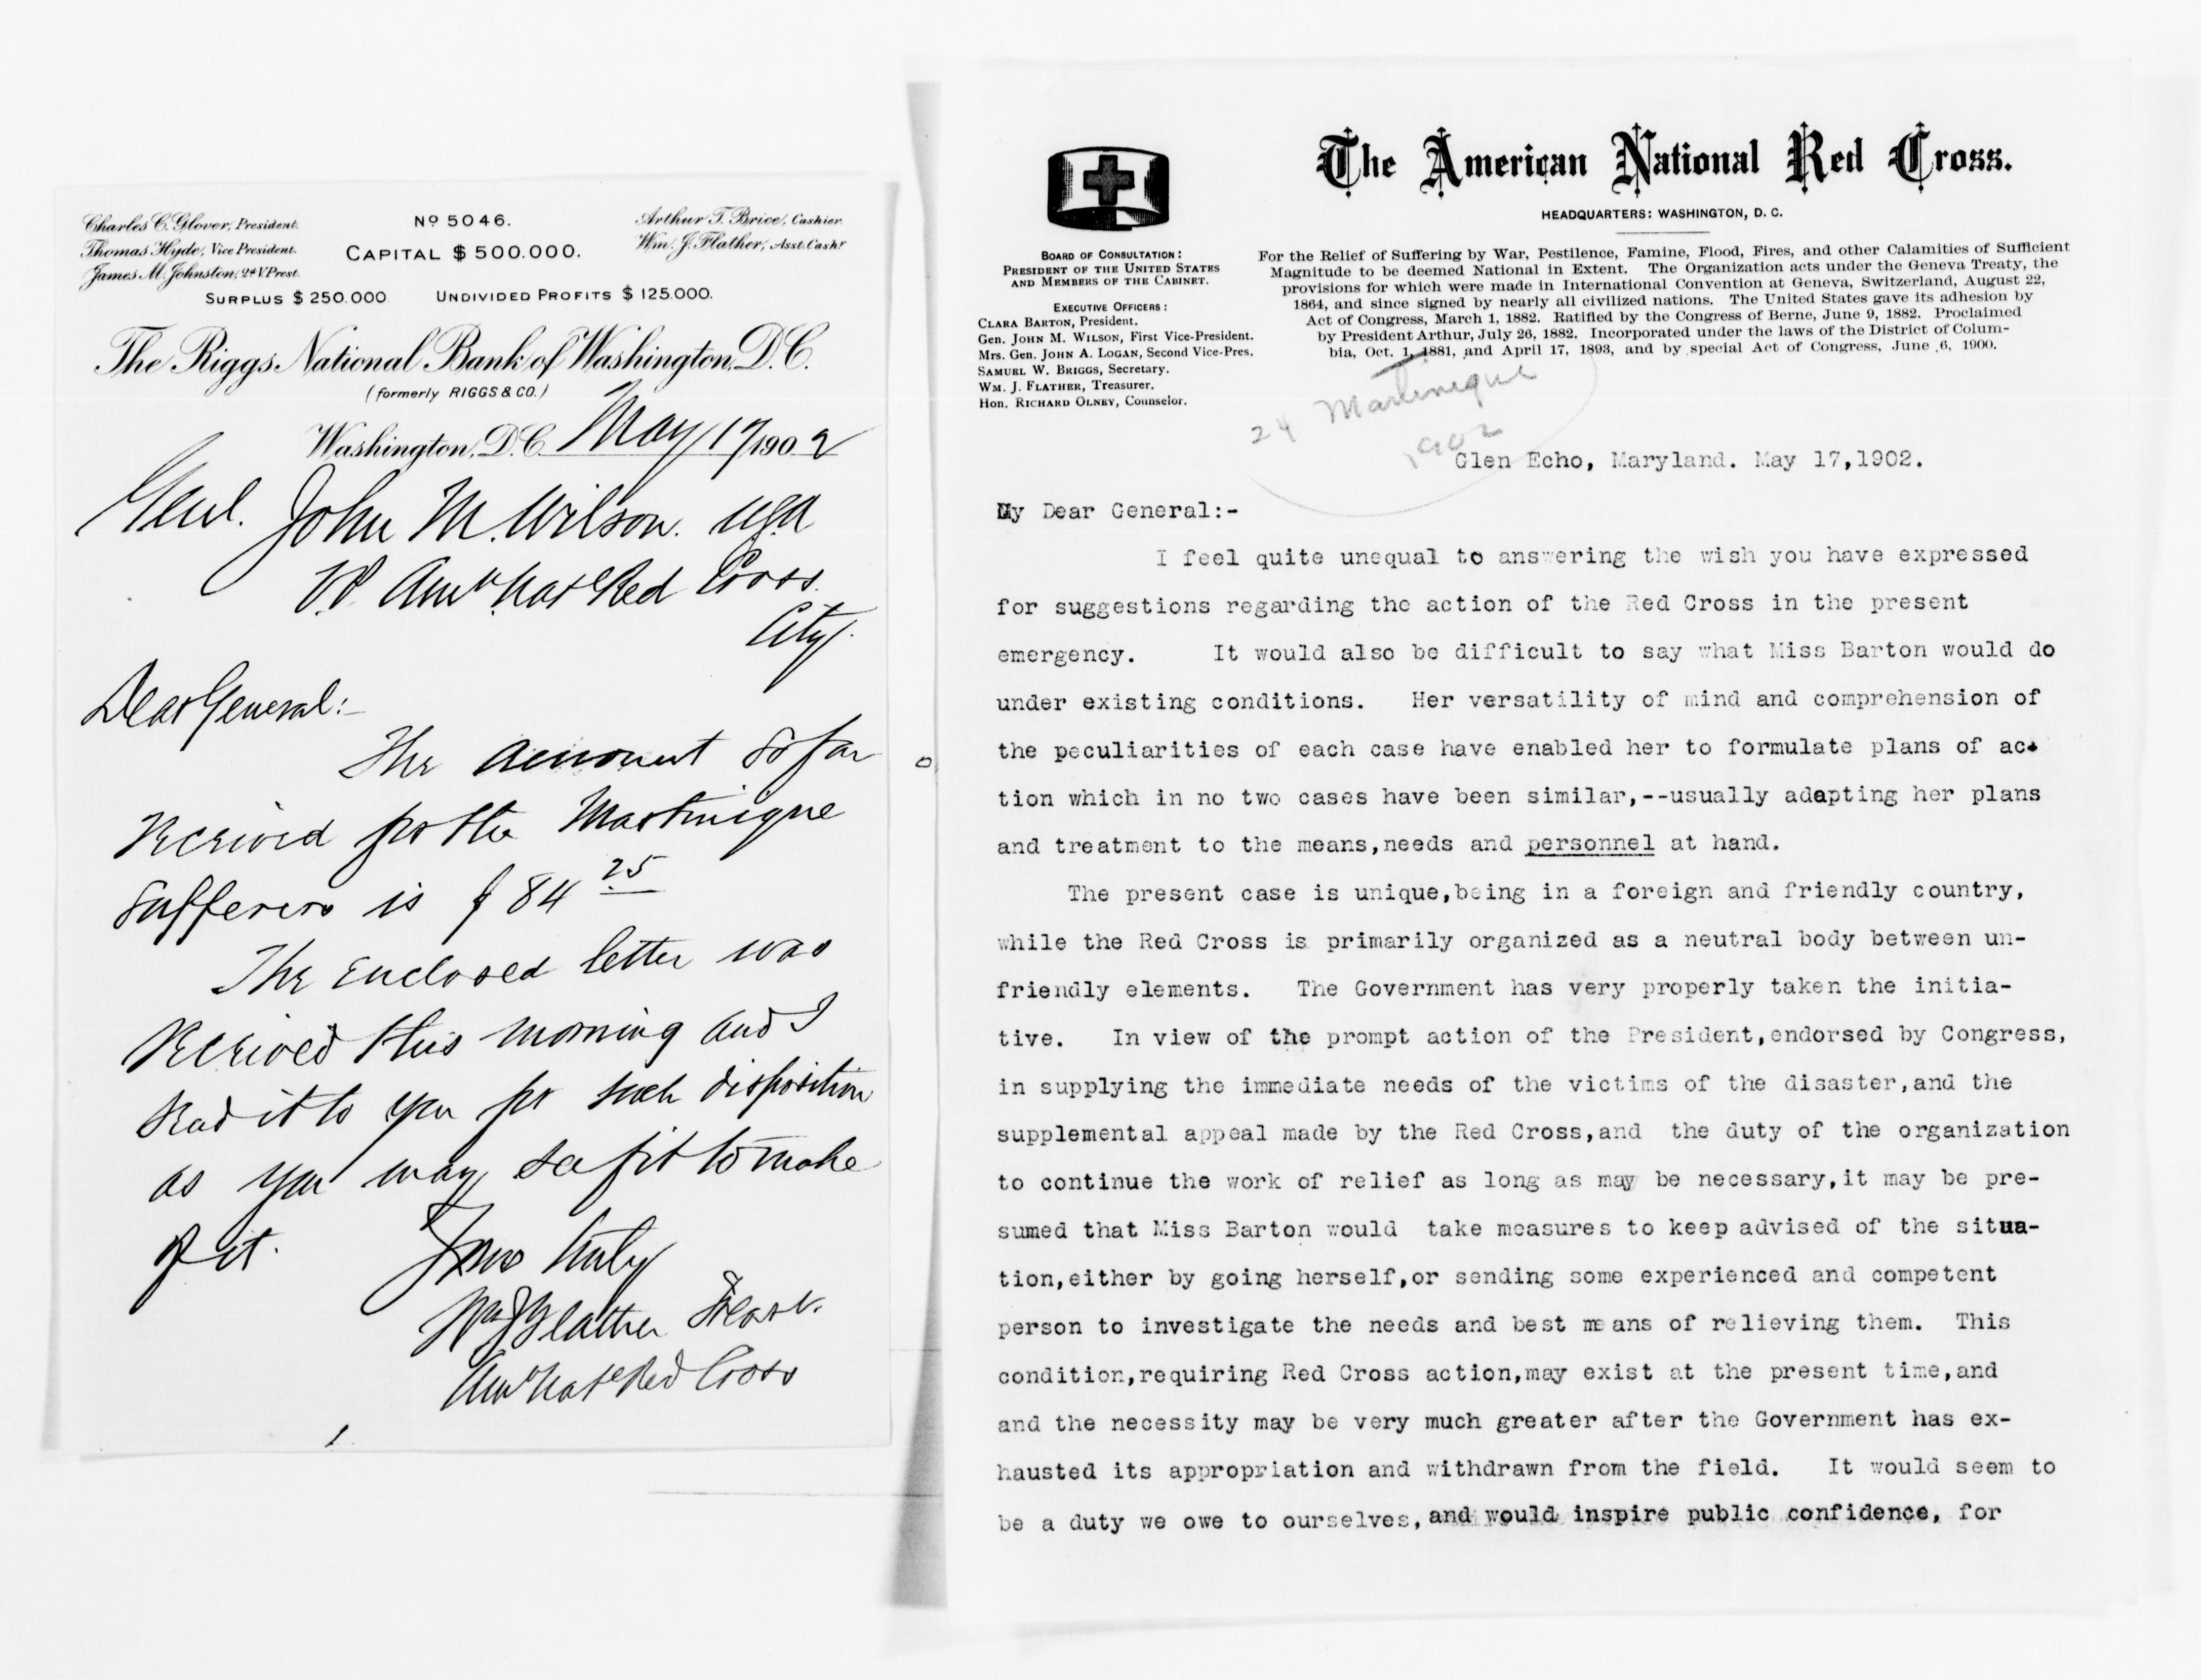 Charles C. Glover, President.
Thomas Hyde, Vice President.
James M. Johnston, 2d V. Prest.
No 5046.
CAPITAL $500.000.
Arthur T. Brice, Cashier.
Wm. J. Flather, Asst. Cashr
SURPLUS $250.000. UNDIVIDED PROFITS $125.000.
The Riggs National Bank of Washington, D.C.
(formerly RIGGS & CO.)
Washington, D.C. May 17 1902
Genl. John M. Wilson. USA
V.P. Amn Natl Red Cross.
City.
Dear General:-
The amount so far
received for the Martinique
sufferers is $84 25
The enclosed letter was
received this morning and I
send it to you for such disposition
as you may see fit to make
of it.
Yours truly
Wm J Flather Treasr.
Amn Natl Red Cross
The American National Red Cross.
HEADQUARTERS: WASHINGTON, D. C.
BOARD OF CONSULTATION:
PRESIDENT OF THE UNITED STATES
AND MEMBERS OF THE CABINET.
EXECUTIVE OFFICERS:
CLARA BARTON, President.
Gen. JOHN M. WILSON, First Vice-President.
Mrs. Gen. JOHN A. LOGAN, Second Vice-Pres.
SAMUEL W. BRIGGS, Secretary.
WM. J. FLATHER, Treasurer.
Hon. RICHARD OLNEY, Counselor.
For the Relief of Suffering by War, Pestilence, Famine, Flood, Fires, and other Calamities of Sufficient
Magnitude to be deemed National in Extent. The Organization acts under the Geneva Treaty, the
provisions for which were made in International Convention at Geneva, Switzerland, August 22,
1864, and since signed by nearly all civilized nations. The United States gave its adhesion by
Act of Congress, March 1, 1882. Ratified by the Congress of Berne, June 9, 1882. Proclaimed
by President Arthur, July 26, 1882. Incorporated under the laws of the District of Colum-
bia, Oct. 1, 1881, and April 17, 1893, and by special Act of Congress, June 6, 1900.
24 Martinique
1902
Glen Echo, Maryland. May 17,1902.
My Dear General:-
I feel quite unequal to answering the wish you have expressed
for suggestions regarding the action of the Red Cross in the present
emergency. It would also be difficult to say what Miss Barton would do
under existing conditions. Her versatility of mind and comprehension of
the peculiarities of each case have enabled her to formulate plans of ac-
tion which in no two cases have been similar,--usually adapting her plans
and treatment to the means,needs and personnel at hand.
The present case is unique,being in a foreign and friendly country,
while the Red Cross is primarily organized as a neutral body between un-
friendly elements. The Government has very properly taken the initia-
tive. In view of the prompt action of the President,endorsed by Congress,
in supplying the immediate needs of the victims of the disaster,and the
supplemental appeal made by the Red Cross,and the duty of the organization
to continue the work of relief as long as may be necessary,it may be pre-
sumed that Miss Barton would take measures to keep advised of the situa-
tion,either by going herself,or sending some experienced and competent
person to investigate the needs and best means of relieving them. This
condition,requiring Red Cross action,may exist at the present time,and
and the necessity may be very much greater after the Government has ex-
hausted its appropriation and withdrawn from the field. It would seem to
be a duty we owe to ourselves, and would inspire public confidence, for